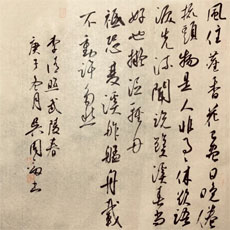 風住塵香花已盡日晚倦
梳頭物是人非事〻休欲語
淚先流聞說雙溪春尚
好也擬泛輕舟
祗恐雙溪舴艋舟載
不動許多愁
李清照武陵春
庚子冬月吳國